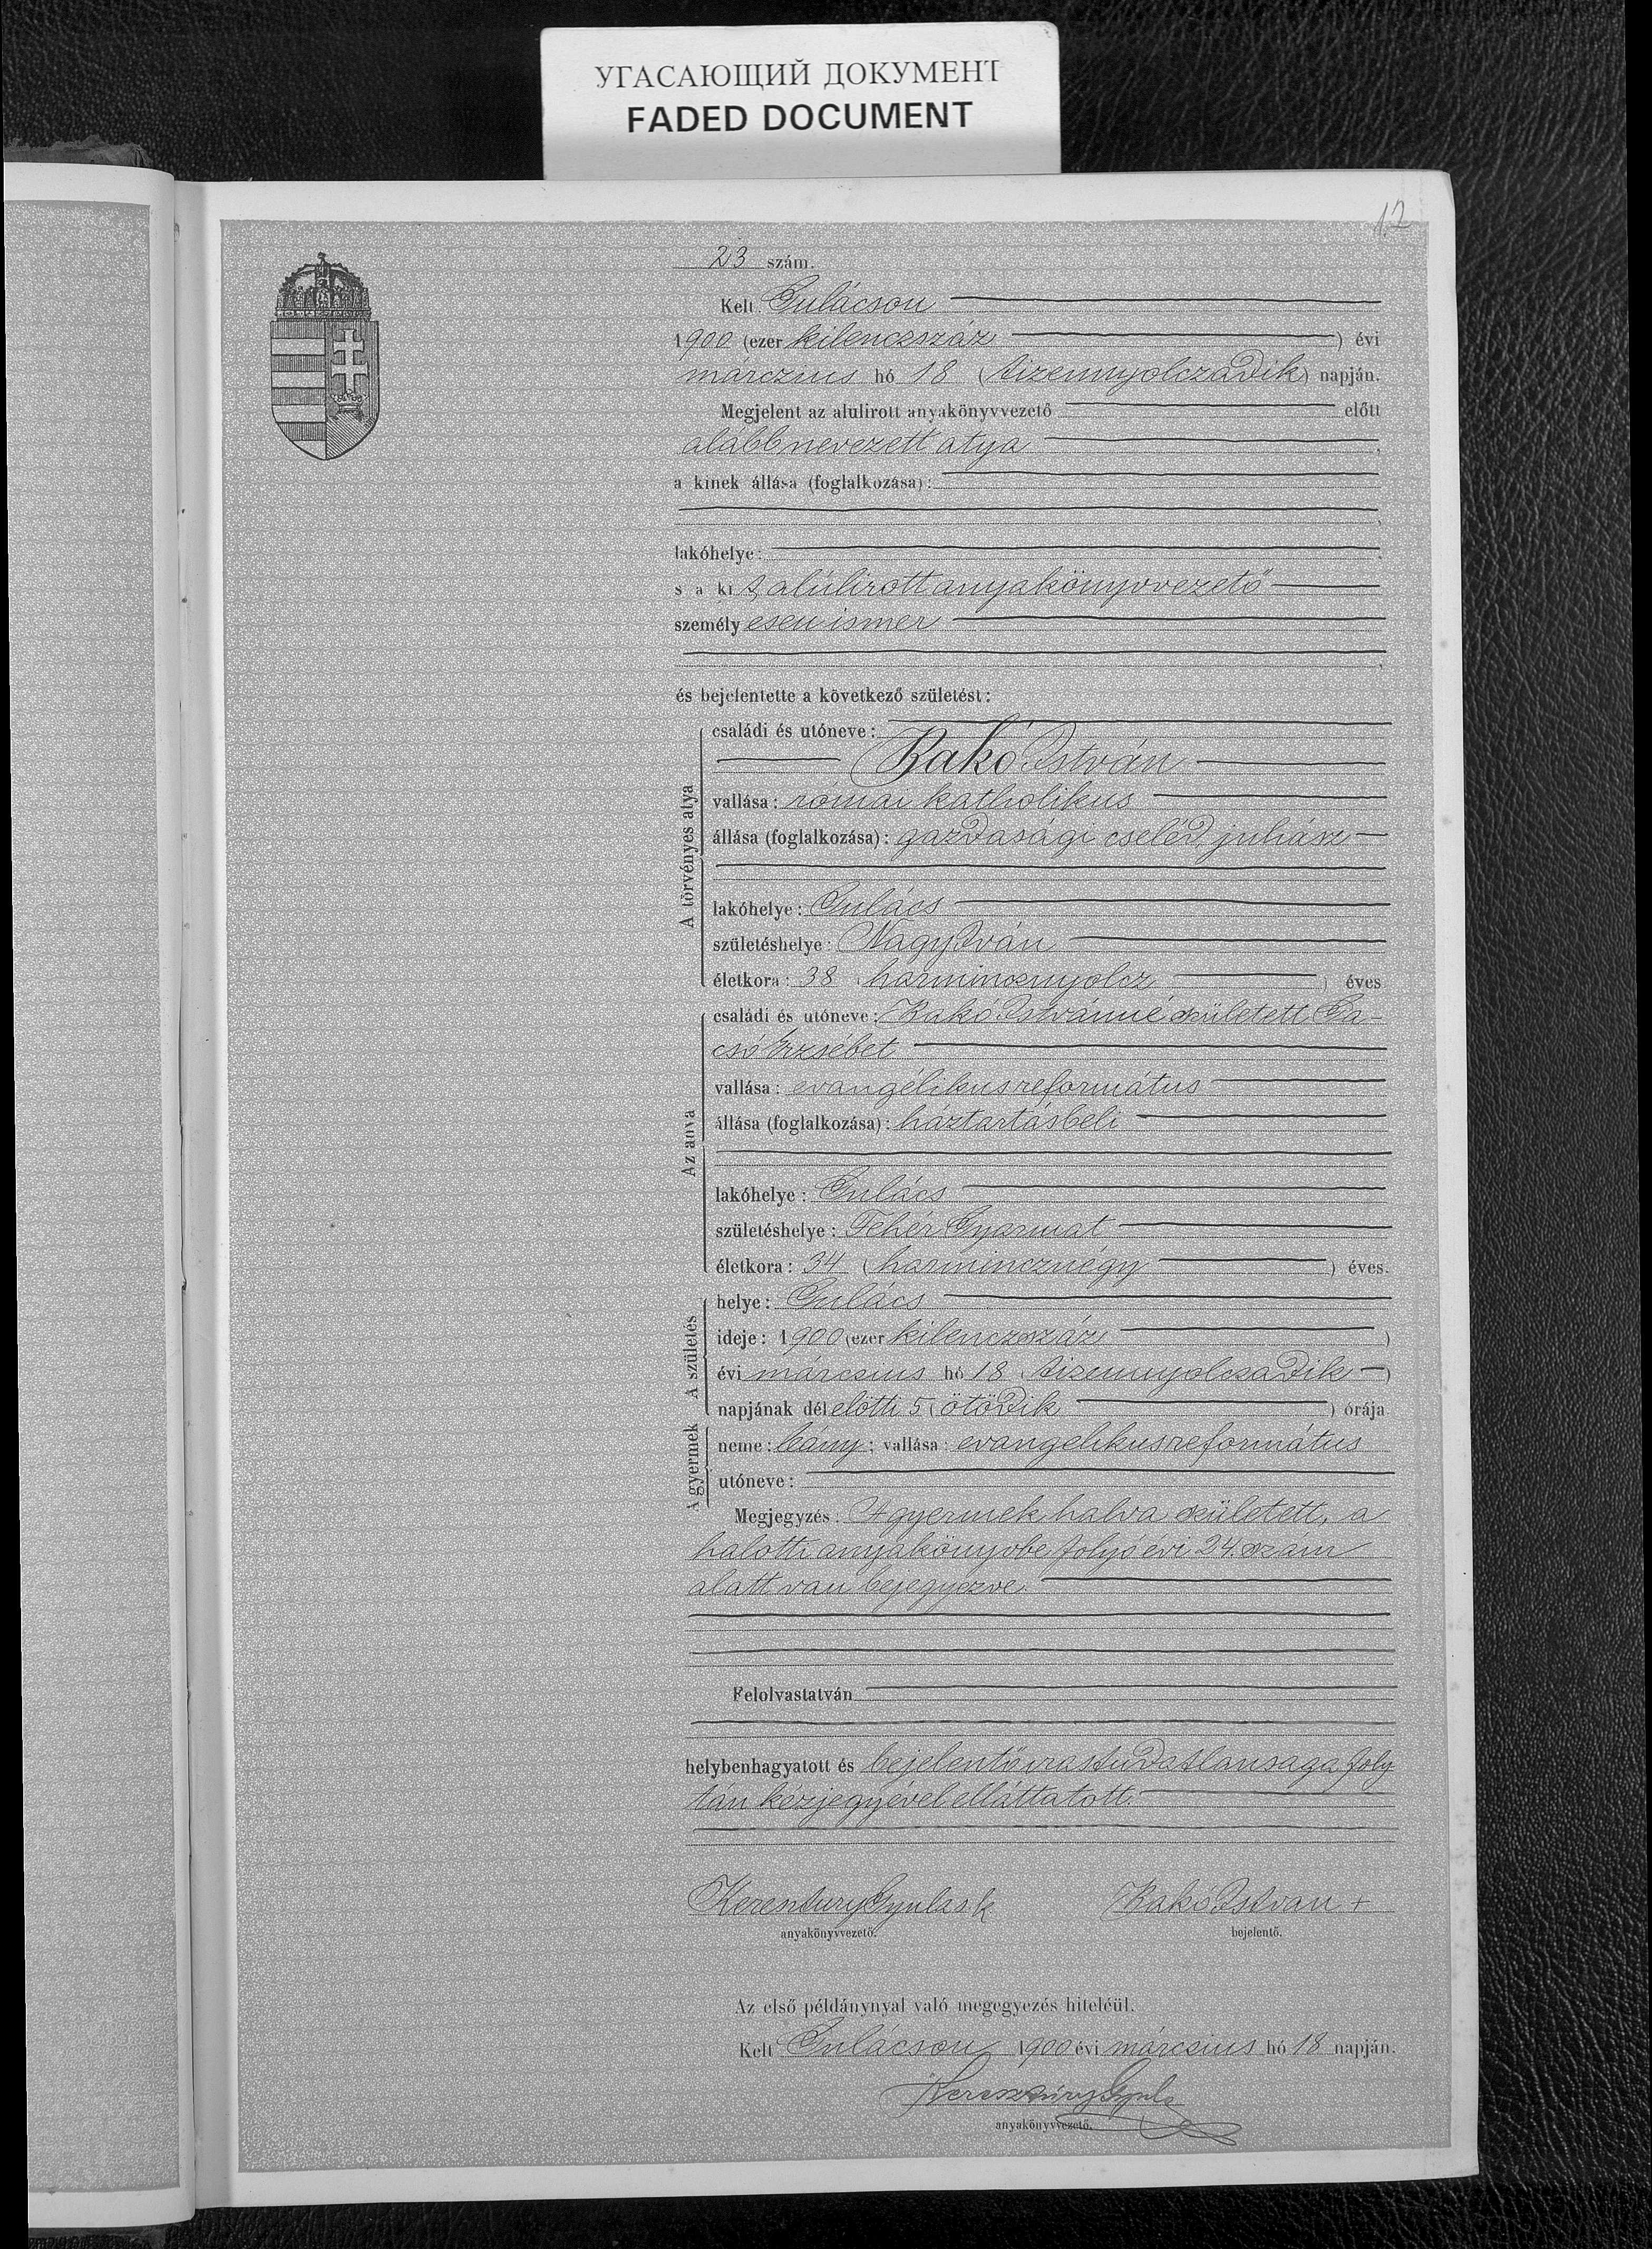 УГАСАЮЩИЙ ДОКУМЕНТ
FADED DOCUMENT
12
23 szám.
Kelt Gulácson
1900 (ezer kilenczszáz) évi
márczius hó 18 (tizennyolczadik) napján.
Megjelent az alulirott anyakönyvvezető előtt
alábbnevezett atya
a kinek állása (foglalkozása):
lakóhelye:
s a kit alúlirott anyakönyvvezető
személyesen ismer
és bejelentette a következő születést:
A törvényes atya
családi és utóneve:
Rakó István
vallása: római katholikus
állása (foglalkozása): gazdasági cseléd, juhász
lakóhelye: Gulács
születéshelye: Nagy Iván
életkora: 38 (harmincznyolcz) éves
Az anya
családi és utóneve: Rakó Istvánné született Ga-
csó Erzsébet
vallása: evangélikus református
állása (foglalkozása): háztartásbeli
lakóhelye: Gulács
születéshelye: Fehér Gyarmat
életkora: 34 (harmincznégy) éves.
A születés
helye: Gulács
ideje: 1900 (ezer kilenczszáz)
évi márczius hó 18 (tizennyolczadik)
napjának délelőtti 5 (ötödik) órája
A gyermek
neme: leány; vallása: evangelikus református
utóneve:
Megjegyzés: A gyermek halva született, a
halotti anyakönyvbe folyó évi 24. szám
alatt van bejegyezve.
Felolvastatván
helybenhagyatott és bejelentő irástudatlansaga foly
tán kézjegyével elláttatott.
Keresztury Gyula s k
Rakó István +
anyakönyvvezető.
bejelentő.
Az első példánynyal való megegyezés hiteléül.
Kelt Gulácson 1900 évi márczius hó 18 napján.
Keresztury Gyula
anyakönyvvezető.